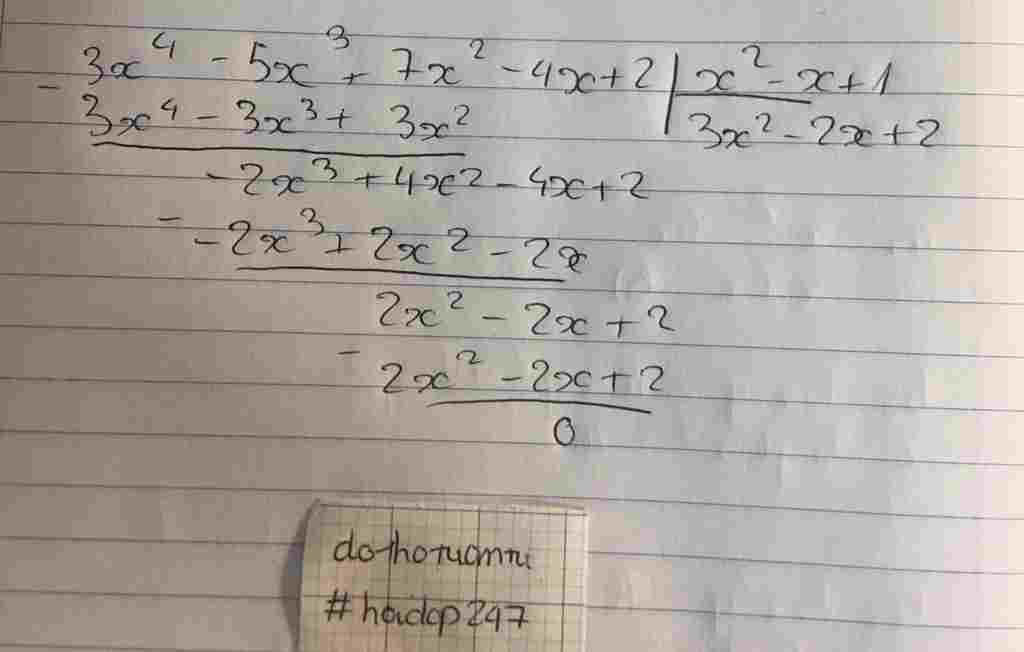 - 3x⁴ - 5x³ + 7x² - 4x + 2 | x² - x + 1
3x⁴ - 3x³ + 3x² | 3x² - 2x + 2
- 2x³ + 4x² - 4x + 2
- - 2x³ + 2x² - 2x
2x² - 2x + 2
- 2x² - 2x + 2
0
#hoidap247